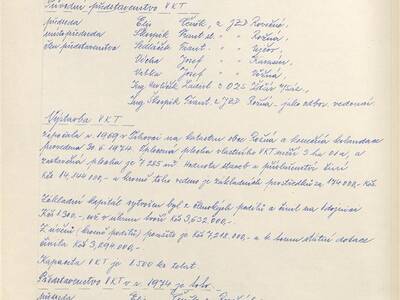 Původní představenstvo VKT
předseda Elis Čeněk, z JZD Rovečné,
místopředseda Skoupík Frant. st. " " Rožná,
člen představenstva Sedláček Frant. " " Ujčov,
Vícha Josef " " Karasín,
Vabka Josef " "
Ing. Ladisl. z OZS Žďár n/Sáz.
Ing. Skoupík Frant. z JZD Rožná - jako odbor. vedoucí
Výstavba VKT
Započala v r. 1969 v na katastru obce Rožná a konečná kolaudace
provedena 30. 6. 1974. Oplocená plocha vlastního VKT měří 3 ha 01 a, z
zastavěná plocha je 7 285 m². Hodnota staveb a příslušenství činí
Kčs 14,144 000,- a kromě toho vedeno je základních prostředků za 174 000,- Kčs
Základní kapitál vytvořen byl z členských podílů a činil na 1 dojnici
Kčs 1300,- což v úhrnu tvoří Kčs 3,632 000,-
Z úvěrů (kromě podílů) použito je Kčs 7,218 000,- a k tomu státní dotace
činila Kčs 3,294 000,-
Kapacita VKT je 1500 ks telat.
Představenstvo VKT v r. 1974 je toto:
předseda